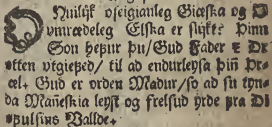 O Huilijk oseigianleg Giæska og O
vmrædeleg Elska er slijkt? Þinn
Son hefur þu/ Gud Fader & Dr-
otten vtgiefed/ til ad endurleysa þin Þr-
æl. Gud er orden Madur/ so ad su tyn-
da Manneskia leyst og frelsud yrde fra Di
øfulsins Vallde.